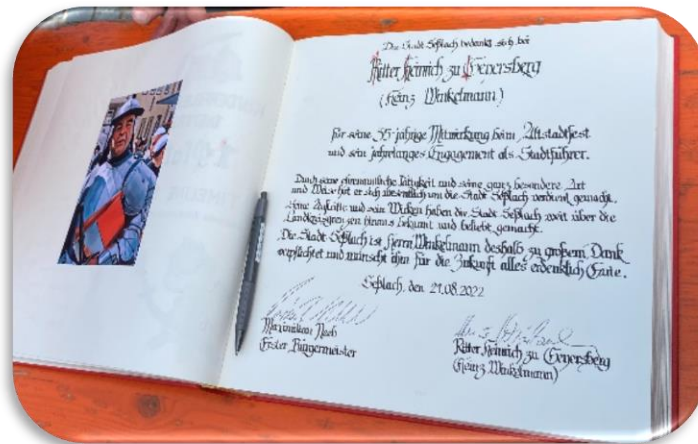 Die Stadt Seßlach bedankt sich bei
Ritter Heinrich zu Geyersberg
(Heinz Winkelmann)
für seine 35-jährige Mitwirkung beim Altstadtfest
und sein jahrelanges Engagement als Stadtführer.
Durch seine ehrenamtliche Tätigkeit und seine ganz besondere Art
und Weise hat er sich wesentlich um die Stadt Seßlach verdient gemacht.
Seine Auftritte und sein Wirken haben die Stadt Seßlach weit über die
Landkreisgrenzen hinaus bekannt und beliebt gemacht.
Die Stadt Seßlach ist Herrn Winkelmann deshalb zu großem Dank
verpflichtet und wünscht ihm für die Zukunft alles erdenklich Gute.
Seßlach, den 21.08.2022
Maximilian Neeb
Erster Bürgermeister
Ritter Heinrich zu Geyersberg
(Heinz Winkelmann)